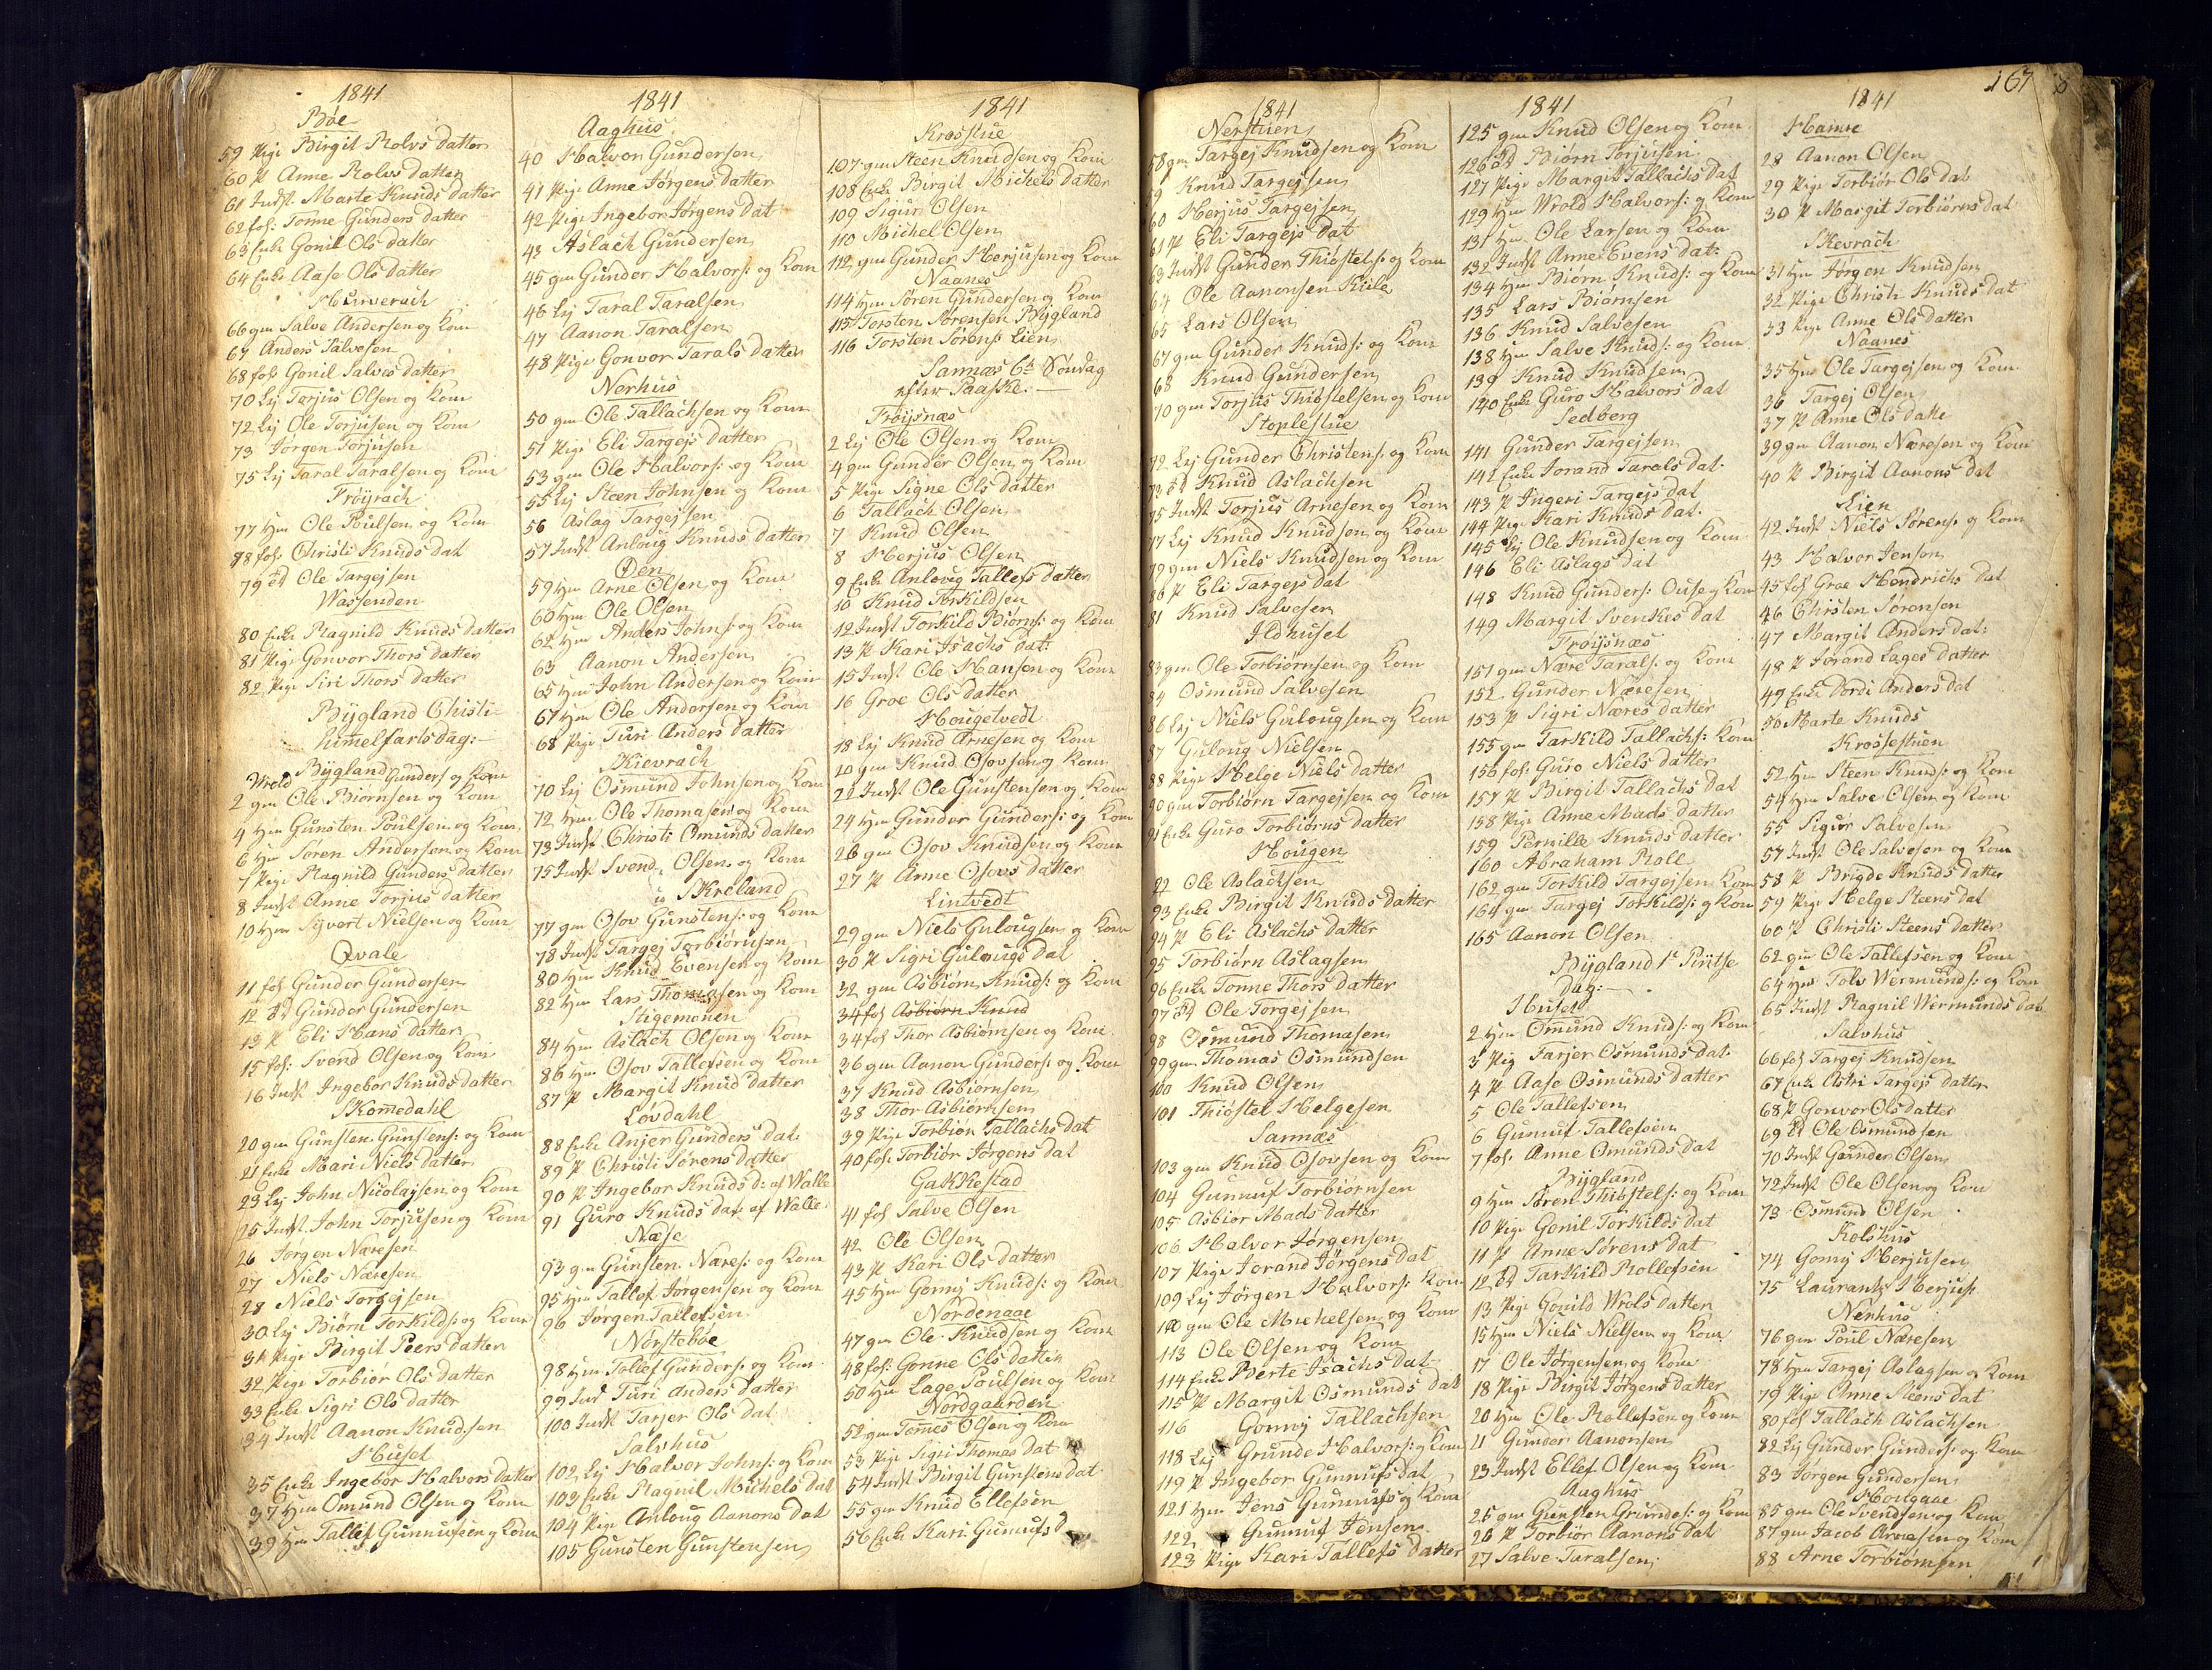 1841
Bøe
59 Pige Birgit Rolvs datter
60 P Anne Rolvs datter
61 Indst Marte Knuds datter
62 fol: Tonne Gunders datter
63 Enke Gonil Ols datter
64 Enke Aase Ols datter
66 gm Salve Andersen og Kone
67 Anders Salvesen
68 fol: Gonil Salves datter
70 Lej Tarjus Olsen og Kone
72 Lej Ole Torjusen og Kone
73 Jørgen Torjusen
75 Lej Taral Taralsen og Kone
Frøyrach
77 Hm Ole Poulsen og Kone
78 fol: Christi Knuds dat
79 Ole Targejsen
Wassenden
80 Enke Ragnild Knuds datter
81 Pige Gonvor Thors datter
82 Pige Siri Thors datter
Bÿgland Christi
himmelfartsdag:
Bÿgland
Wrold Gunders og Kone
2 gm Ole Biørnsen og Kone
4 Hm Gunsten Poulsen og Kone
6 Hm Søren Andersen og Kone
7 Pige Ragnild Gunders datter
8 Indst Anne Torjus datter
10 Hm Syvert Nielsen og Kone
Qvale
11 fol Gunder Gundersen
12 Gunder Gundersen
13 P Eli Hans datter
15 fol: Svend Olsen og Kone
16 Indst Ingebor Knuds datter
Skomedahl
20 gm Gunsten Gunstens: og Kone
21 Enke Mari Niels datter
23 Lej John Nicolajsen og Kone
25 Indst John Torjusen og Kone
26 Jørgen Næresen
27 Niels Næresen
28 Niels Torgejsen
30 Lej Biørn Torkilds: og Kone
31 Pige Birgit Peers datter
32 Pige Torbiør Ols datter
33 Enke Sigri Ols datter
34 Indst Aanon Knudsen
Huset
35 Enke Ingebor Halvors datter
37 Hm Omund Olsen og Kone
39 Hm Tallef Gunnufsen og Kone
1841
Aaghus
40 Halvor Gundersen
41 Pige Anne Jørgens datter
42 Pige Ingebor Jørgens dat
43 Aslach Gundersen
45 gm Gunder Halvors: og Kone
46 Lej Taral Taralsen
47 Aanon Taralsen
48 Pige Gonvor Tarals datter
Nerhus
50 gm Ole Tallachsen og Kone
51 Pige Eli Targejs datter
53 gm Ole Halvors: og Kone
55 Lej Steen Johnsen og Kone
56 Aslag Targejsen
57 Indst Anloug Knuds datter
Øen
59 Hm Arne Olsen og Kone
60 Hm Ole Olsen
62 Hm Anders Johns: og Kone
63 Aanon Andersen
65 Hm John Andersen og Kone
67 Hm Ole Andersen og Kone
68 Pige Turi Anders datter
Skievrach
70 Lej Osmund Johnsen og Kone
72 Hm Ole Thomasen og Kone
73 Indst Christi Omunds datter
75 Indst Svend Olsen og Kone
Skreland
77 gm Osov Gunstens: og Kone
78 Indst Targej Torbiørnsen
80 Hm Knud Evensen og Kone
82 Hm Lars Thomasen og Kone
Stigemonen
84 Hm Aslach Olsen og Kone
86 Hm Osov Tallefsen og Kone
87 P Margit Knud datter
Løvdahl
88 Enke Anjer Gunders dat
89 P Christi Sørens datter
90 P Ingebor Knuds d: af Walle
91 Guro Knuds dat af Walle
Næse
93 gm Gunsten Næres: og Kone
95 Hm Tallef Jørgensen og Kone
96 Jørgen Tallefsen
Nørstebøe
98 Hm Tollef Gunders: og Kone
99 Ind Turi Anders datter
100 Indst Tarjer Ols dat
Salvhus
102 Lej Halvor Johns: og Kone
103 Enke Ragnil Michels dat
104 Pige Anloug Aanons dat
105 Gunsten Gunstensen
1841
Krosstue
107 gm Steen Knudsen og Kone
108 Enke Birgit Michels datter
109 Sigur Olsen
110 Michel Olsen
112 gm Gunder Herjusen og Kone
Naanes
114 Hm Søren Gundersen og Kone
115 Torsten Sørensen Bÿgland
116 Torsten Sørens: Lien
Sannæs 6te Søndag
efter Paaske.
Frøysnæs
2 Lej Ole Olsen og Kone
4 gm Gunder Olsen og Kone
5 Pige Signe Ols datter
6 Tallach Olsen
7 Knud Olsen
8 Herjus Olsen
9 Enke Anlovg Tallefs datter
10 Knud Torkildsen
12 Indst Torkild Biørns: og Kone
13 P Kari Isachs dat:
15 Indst Ole Hansen og Kone
16 Groe Ols datter
Hougetvedt
18 Lej Knud Arnesen og Kone
20 gm Knud Osovsen og Kone
22 Indst Ole Gunstensen og Kone
24 Hm Gunder Gunders: og Kone
26 gm Osov Knudsen og Kone
27 P Anne Osovs datter
Lintvedt
29 gm Niels Gulougsen og Kone
30 P Sigri Gulougs dat
32 gm Asbiørn Knuds: og Kone
34 fol Asbiørn Knud
34 fol Thor Asbiørnsen og Kone
36 gm Aanon Gunders: og Kone
37 Knud Asbiørnsen
38 Thor Asbiørnsen
39 Pige Torbiør Tallachs dat
40 fol: Torbiør Jørgens dat
Gakkestad
41 fol Salve Olsen
42 Ole Olsen
43 P Kari Ols datter
45 Hm Gonny Knuds: og Kone
Nordenaae
47 gm Ole Knudsen og Kone
48 fol: Gonne Ols datter
50 Hm Lage Poulsen og Kone
Nordgaarden
52 gm Tomes Olsen og Kone
53 Pige Sigri Thomas dat
54 Indst Birgit Gunstens dat
55 gm Knud Ellefsen
56 Enke Kari Gunnufs d
167
1841
Nerstuen
58 gm Targej Knudsen og Kone
59 Knud Targejsen
60 Herjus Targejsen
61 P Eli Targejs dat
63 Indst Gunder Thiøstels: og Kone
64 Ole Aanonsen Kiile
65 Lars Olsen
67 gm Gunder Knuds: og Kone
68 Knud Gundersen
70 gm Torjus Thiøstelsen og Kone
Stoplestue
72 Lej Gunder Christens: og Kone
73 Knud Aslachsen
75 Indst Torjus Arnesen og Kone
77 Lej Knud Knudsen og Kone
79 gm Niels Knudsen og Kone
80 P Eli Targejs dat
81 Knud Salvesen
Ildhuset
83 gm Ole Torbiørnsen og Kone
84 Osmund Salvesen
86 Lej Niels Gulougsen og Kone
87 Guloug Nielsen
88 Pige Helge Niels datter
90 gm Torbiørn Targejsen og Kone
91 Enke Guro Torbiørns datter
Hougen
92 Ole Aslachsen
93 Enke Birgit Knuds datter
94 P Eli Aslachs datter
95 Torbiørn Aslagsen
96 Enke Tonne Thors datter
97 Ole Torgejsen
98 Osmund Thomasen
99 gm Thomas Osmundsen
100 Knud Olsen
101 Thiøstel Helgesen
Sannæs
103 gm Knud Osovsen og Kone
104 Gunnuf Torbiørnsen
105 Asbiør Mads datter
106 Halvor Jørgensen
107 Pige Jorand Jørgens dat
109 Lej Jørgen Halvors: Kone
gm Ole Michelsen og Kone
113 Ole Olsen og Kone
114 Enke Berte Isachs dat
115 P Margit Osmunds dat
116 Gonny Tallachsen
118 Lej Grunde Halvors: og Kone
119 P Ingebor Gunnufs dat
121 Hm Jens Gunnufs og Kone
122 Gunnuf Jensen
123 Pige Kari Tallefs datter
1841
125 gm Knud Olsen og Kone
126 Biørn Torjusen
127 Pige Margit Tallachs dat
129 Hm Wrold Halvors: og Kone
131 Hm Ole Larsen og Kone
132 Indst Anne Evens dat:
134 Hm Biørn Knuds: og Kone
135 Lars Biørnsen
136 Knud Salvesen
138 Hm Salve Knuds: og Kone
139 Knud Knudsen
140 Enke Guro Halvors dat
Sedberg
141 Gunder Targejsen
142 Enke Jorand Tarals dat
143 P Ingeri Targejs dat
144 Pig. Kari Knuds dat.
145 Lej Ole Knudsen og Kone
146 Eli Aslags dat
148 Knud Gunders: Ouse og Kone
149 Margit Svenkes dat
Frøysnæs
151 gm Nære Tarals: og Kone
152 Gunder Næresen
153 P Sigri Næres datter
155 gm Tarkild Tallachs: Kone
156 fol: Guro Niels datter
157 P Birgit Tallachs dat
158 Pige Anne Mads datter
159 Pernille Knuds datter
160 Abraham Roll
162 gm Torkild Targejsen Kone
164 gm Targej Torkilds: og Kone
165 Aanon Olsen
Bÿgland 1te Pintse
Dag:
Huset
2 Hm Omund Knuds: og Kone
3 Pig Tarjer Osmunds dat
4 P Aase Osmunds datter
5 Ole Tallefsen
6 Gunuf Tallefsen
7 fol: Anne Omunds dat
Bÿgland
9 Hm Søren Thiøstels: og Kone
10 Pige Gonil Torkilds dat
11 P Anne Sørens dat
12 Tarkild Rollefsen
13 Pige Gonild Wrols datter
15 Hm Niels Nielsen og Kone
17 Ole Jørgensen og Kone
18 Pige Birgit Jørgens datter
20 Hm Ole Rollefsen og Kone
21 Gunder Aanonsen
23 Indst Ellef Olsen og Kone
Aaghus
25 gm Gunsten Grundes: og Kone
26 P Torbiør Aanons dat
27 Salve Taralsen
1841
Hamre
28 Aanon Olsen
29 Pige Torbiør Ols dat
30 P Margit Torbiørns dat
Skevrach
31 Hm Jørgen Knudsen
32 Pige Christi Knuds dat
33 Pige Anne Ols datter
Naanes
35 Hm Ole Targejsen og Kone
36 Targej Olsen
37 P Anne Ols datte
39 gm Aanon Næresen og Kone
40 P Birgit Aanons dat
Lien
42 Indst Niels Sørens: og Kone
43 Halvor Jensen
45 fol Groe Hendrichs dat
46 Christen Sørensen
47 Margit Anders dat:
48 P Jorand Lages datter
49 Enke Dordi Anders dat
50 Marte Knuds
Krossestuen
52 Hm Steen Knuds: og Kone
54 Hm Salve Olsen og Kone
55 Sigur Salvesen
57 Indst Ole Salvesen og Kone
58 P Brigde Knuds datter
59 Pige Helge Steens dat
60 P Christi Steens datter
62 gm Ole Tallefsen og Kone
64 Hm Tolv Wermunds: og Kone
65 Indst Ragnil Wermunds dat
Salvhus
66 fol Targej Knudsen
67 Enke Astri Targejs datter
68 P Gonvor Ols datter
69 Ole Osmundsen
70 Indst Gunder Olsen
72 Indst Ole Olsen og Kone
73 Osmund Olsen
Kolshus
74 Gonny Herjusen
75 Laurants Herjus:
Nerhus
76 gm Poul Næresen
78 Hm Targej Aslagsen og Kone
79 Pige Anne Steens dat
80 fol Tallach Aslachsen
82 Lej Gunder Gunders: og Kone
83 Jørgen Gundersen
Hougaae
85 gm Ole Svendsen og Kone
87 gm Jacob Arnesen og Kone
88 Arne Torbiørnsen